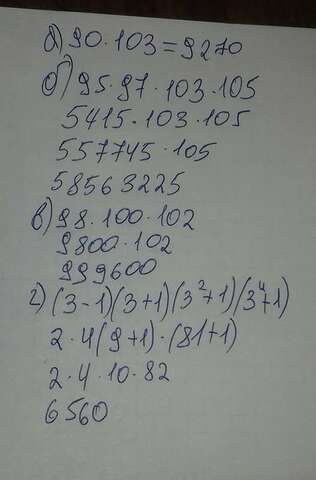 а) 90·103=9270
б) 95·97·103·105
5415·103·105
557745·105
58563225
в) 98·100·102
9800·102
999600
г) (3-1)(3+1)(3²+1)(3⁴+1)
2·4(9+1)·(81+1)
2·4·10·82
6560